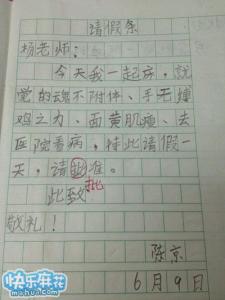 请假条
杨老师：
今天我一起床，就
觉的魂不附体、手无搏
鸡之力、面黄肌瘦、去
医院看病，特此请假一
天，请批准。
批
此致
敬礼！
陈京
6月9日
快乐麻花